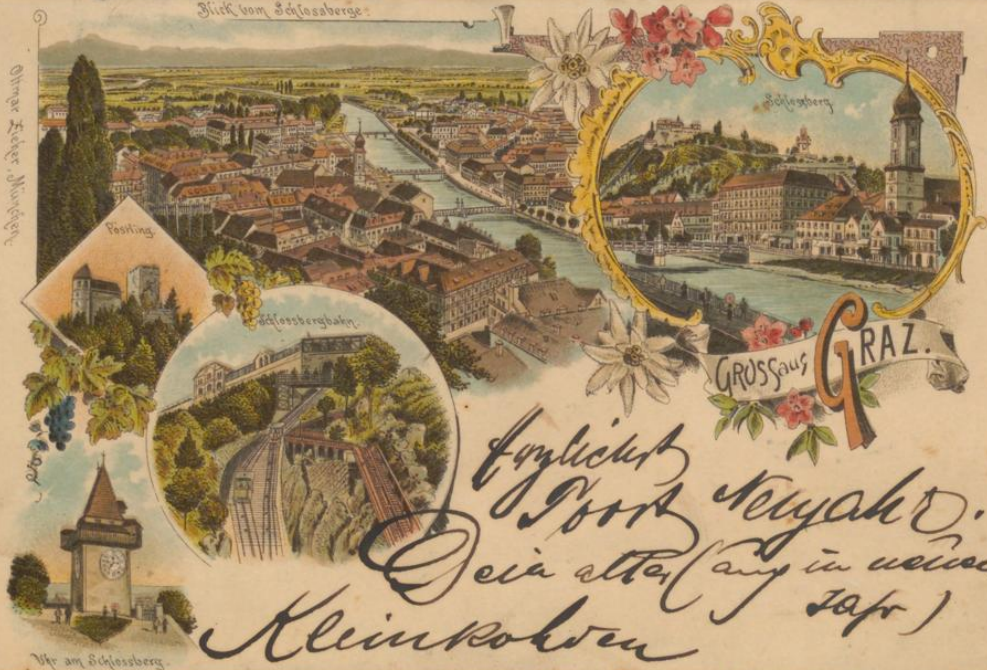 Blick vom Schlossberge.
Ottmar Zieher, München.
Schlossberg.
Gösting.
Schlossbergbahn.
GRUSS aus GRAZ.
Uhr am Schlossberg.
Herzlichst
Prost Neujahr.
Dein alter (auch in neuen
Jahr)